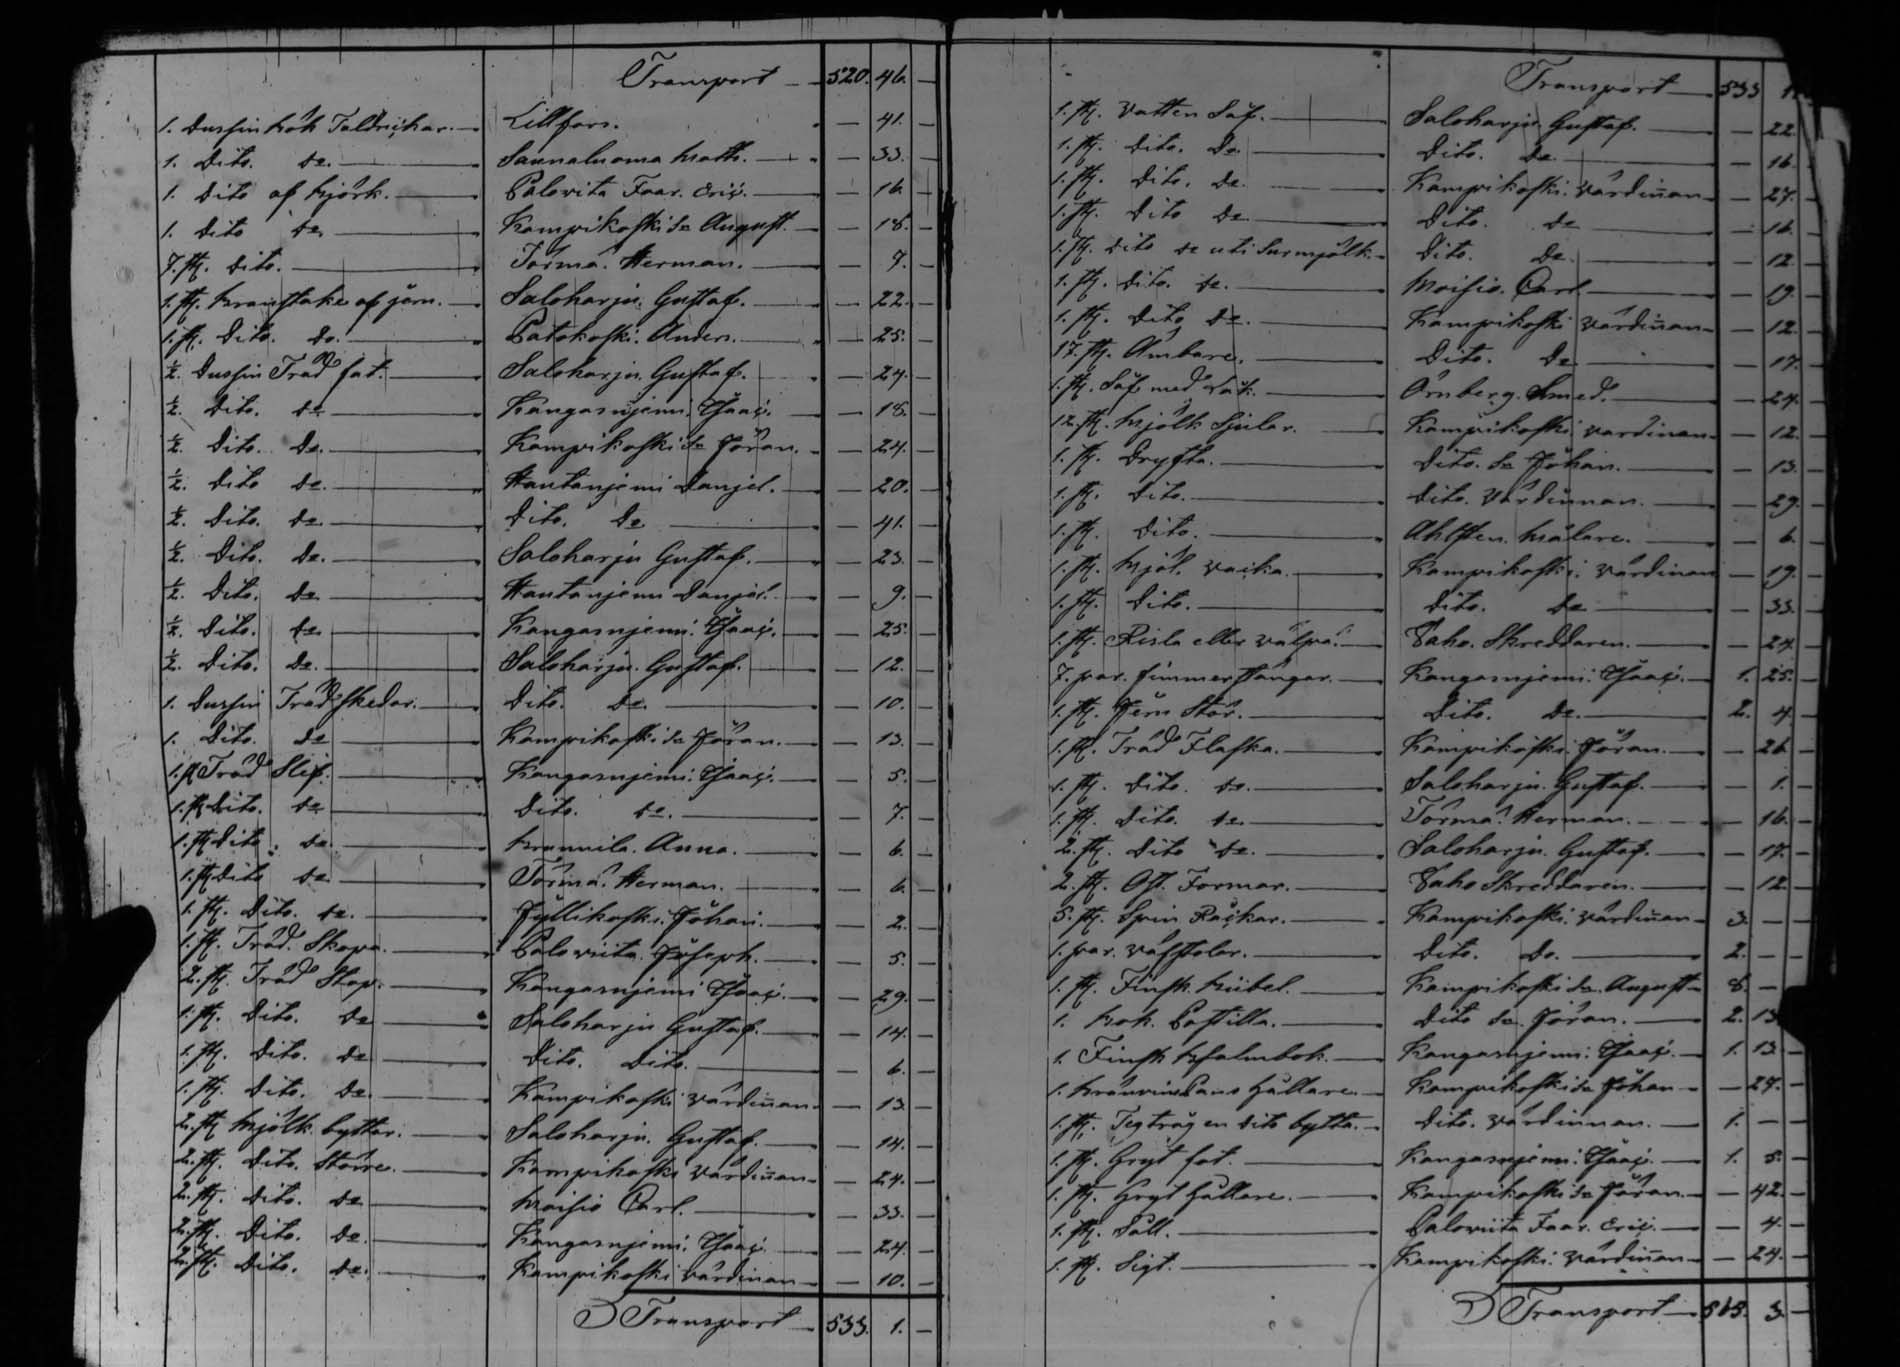 Transport 520. 46. —
1. Dussin hök Taldrickar. Lillfors. — 41. —
1. Dito. de. Saunaluoma Math. — 33. —
1. Dito af björk. Palovita Faar. Eric. — 16. —
1. Dito de. Kampikoski de August. — 18. —
7. st. Dito. Törmä. Herman. — 9. —
1. st. Ljusstake af järn. Saloharju. Gustaf. — 22. —
1. st. Dito. do. Patokoski. Anders. — 25. —
½. Dussin Träd fat. Saloharju. Gustaf. — 24. —
½. Dito. de Kangasnjemi. Isaac. — 18. —
½. Dito. De. Kampikoski de Jöran. — 24. —
½. Dito de. Hautanjemi Danjel. — 20. —
½. Dito. de. Dito. De — 41. —
½. Dito. De. Saloharju Gustaf. — 23. —
½. Dito. de Hautanjemi Danjel. — 9. —
½. Dito. de Kangasnjemi. Isaac. — 25. —
½. Dito. De. Saloharju. Gustaf. — 12. —
1. Dussin Träd skedar. Dito. De. — 10. —
1. Dito. De Kampikoski de Jöran. — 13. —
1. st Träd Slef. Kangasnjemi. Isaac. — 5. —
1. st Dito. de Dito. de. — 7. —
1. st Dito. de. Anna. — 6. —
1. st Dito de Törmä. Herman. — 6. —
1. st. Dito. de. Jyllikoski. Johan. — 2. —
1. st. Träd. Skopa. Paloviita. Joseph. — 5. —
2. st. Träd Stop. Kangasnjemi Isaac. — 29. —
1. st. Dito. De Saloharju Gustaf. — 14. —
1. st. Dito. De Dito. Dito. — 6. —
1. st. Dito. De. Kampikoski värdinnan — 13. —
2. st Mjölk byttor. Saloharju. Gustaf. — 14. —
2. st. Dito. Större. Kampikoski värdinnan — 24. —
2. st. Dito. de Moisio Carl. — 33. —
2. st. Dito. De. Kangasnjemi. Isaac. — 24. —
2. st. Dito. de. Kampikoski värdinnan — 10. —
Transport 533. 1. —
Transport 533 1.
1. st. Vatten Såf. Saloharju. Gustaf. — 22.
1. st. Dito. De. Dito. de — 16. —
1. st. Dito. De. Kampikoski. värdinnan — 27. —
1. st. Dito de Dito. de — 16. —
1. st. Dito de uti Surmjölk. Dito. De. — 12. —
1. st. Dito. de. Moisio. Carl. — 19. —
1. st. Dito de. Kampikoski värdinnan — 12. —
17. st. Ämbare. Dito. De — 17. —
1. st. Såf med Örnberg. Smed. — 24. —
12. st. Mjölk Kampikoski värdinnan — 12. —
1. st. Dryfta. Dito. de Johan. — 13. —
1. st. Dito. Dito. Värdinnan. — 29. —
1. st. Dito. Ahlsten. Målare. — 6. —
1. st. Mjöl. Vacka. Kampikoski. värdinnan — 19. —
1. st. Dito. Dito. De — 33. —
1. st. Risla eller Välpä. Paho. Skreddaren. — 24. —
7. par. Timmer stångar. Kangasnjemi. Isaac. 1. 25. —
1. st. Jern Stör. Dito. De. 2. 4. —
1. st. Träd Flaska. Kampikoski. Jöran. — 26. —
1. st. Dito. de. Saloharju. Gustaf. — 1. —
1. st. Dito. de. Törmä. Herman. — 16. —
2. st. Dito de. Saloharju. Gustaf. — 17. —
2. st. Ost. Formar. Paho Skreddaren. — 12. —
5. st. Spin Råckar. Kampikoski. värdinnan 3. — —
1. par. väfstolar. Dito. Do. 2. — —
1. st. Finsk Bibel. Kampikoski de August 8. — —
1. bok. Postilla. Dito de. Jöran. 2. 13.
1. Finsk Psalmbok. Kangasnjemi. Isaac. 1. 13. —
1. Kampikoski de Johan — 27. —
1. st. Degtråg en dito bytta. Dito. Värdinnan. 1. — —
1. st. Gryt fat. Kangasnjemi. Isaac. 1. 5. —
1. st. Gryt Hållare. Kampikoski de Jöran. — 42. —
1. st. Såll. Paloviita Faar. Eric. — 4. —
1. st. Sigt. Kampikoski. Värdinnan — 24. —
Transport 563. 3. —